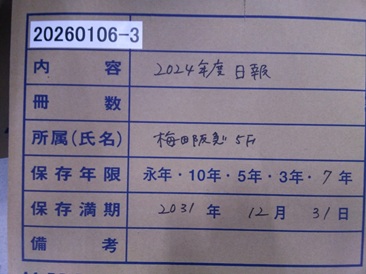 20260106-3
内容 2024年度 日報
冊数
所属(氏名) 梅田阪急 5F
保存年限 永年・10年・5年・3年・7年
保存満期 2031年 12月 31日
備考